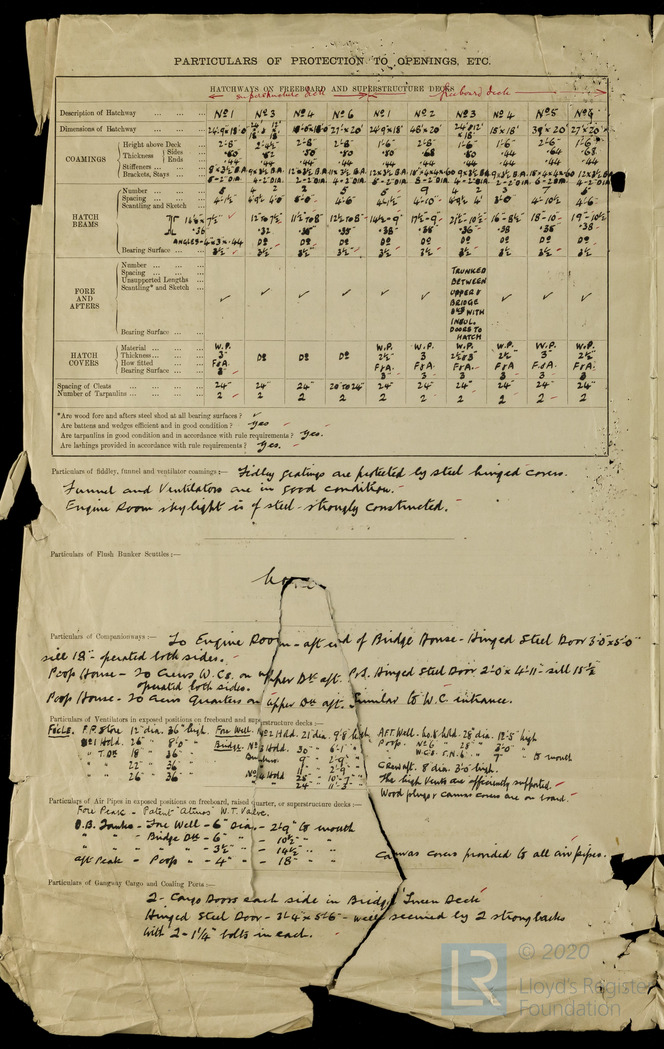 PARTICULARS OF PROTECTION TO OPENINGS, ETC.
HATCHWAYS ON FREEBOARD AND SUPERSTRUCTURE DECKS
superstructure deck freeboard deck
Description of Hatchway Nº1 Nº3 Nº4 Nº6 Nº1 Nº2 Nº3 Nº4 Nº5 Nº6
Dimensions of Hatchway 24'9×18'0 18'0×18'0 27'×20' 24'9×18' 45'×20' 18×18' 39'×20' 27'×20'
COAMINGS
Height above Deck 2'-8" 2'-4½" 2'-8" 2'-8" 1'-6" 2'-8" 1'-6" 1'-6" 2'-6" 1'-6"
Thickness Sides .50 .52 .50 .50 .50 .68 .50 .44 .64 .68
Ends .44 .44 .44 .44 .44 .44 .44 .44 .44 .44
Stiffeners
Brackets, Stays
HATCH BEAMS
Number 5 4 2 5 5 9 4 2 3 7 5
Spacing 4'-1½ 4'9½ 4'0 6'-0" 4'-6" 4'1½ 4'-10" 4'9½ 4' 3'0" 4'10½ 4'-6"
Scantling and Sketch
16½"-7½" 12 to 7½ 11½ to 8" 12½ to 8" 14½-9" 17½-9" 21½-10½ 16-8½" 18-10" 19"-10½
.36 .32 .35" .35" .38 .38 .36 .38 .38 .38
ANGLES 4×3×.44 Dº Dº Dº Dº Dº Dº Dº Dº Dº
Bearing Surface 3½" 3½" 3½" 3½" 3½ 3½ 3½ 3½" 3½" 3½"
FORE AND AFTERS
Number
Spacing
Unsupported Lengths
Scantling* and Sketch
TRUNKED
BETWEEN
UPPER &
BRIDGE
DKS WITH
INSUL.
DOORS TO
HATCH
Bearing Surface
HATCH COVERS
Material W.P. W.P. W.P. W.P. W.P. W.P. W.P.
Thickness 3" Dº Dº Dº 2½" 3 2½ & 3" 2½ 3" 2½
How fitted F&A. F&A. F&A. F&A. F&A. F&A. F&A.
Bearing Surface 3" 3 3 3 3 3 3
Spacing of Cleats 24" 24" 24" 20 to 24" 24" 24" 24" 24" 24" 24"
Number of Tarpaulins 2 2 2 2 2 2 2 2 2 2
*Are wood fore and afters steel shod at all bearing surfaces?
Are battens and wedges efficient and in good condition? Yes
Are tarpaulins in good condition and in accordance with rule requirements? Yes.
Are lashings provided in accordance with rule requirements? Yes.
Particulars of fiddley, funnel and ventilator coamings:— Fidley gratings are protected by steel hinged covers.
Funnel and Ventilators are in good condition.
Engine Room skylight is of steel - strongly constructed.
Particulars of Flush Bunker Scuttles:—
None
Particulars of Companionways:— To Engine Room - aft end of Bridge House - Hinged Steel Door 3'0"×5'0"
sill 18" operated both sides.
Poop House - To Crews W.Cs. on upper Dk aft. Pt. Hinged Steel Door 2'0"×4'11" sill 15½
operated both sides.
Poop House - To Crews Quarters on upper Dk aft. Similar to W.C. entrance.
Particulars of Ventilators in exposed positions on freeboard and superstructure decks:—
Focle. F.P. Store 12" dia. 36" high. Fore Well. Nº2 Hold. 21" dia. 9'8" high AFT Well. No.6 hold. 28" dia. 12'5" high
Nº1 Hold. 26" 8'0" Bridge. Nº3 Hold. 30" 6'-1" Poop. Nº6 " 28" " 3'0"
" T.Dk 18" 36" 9" 2'-9" 7" " to mouth
" 22" 36" 11" 2'-9" Crew aft. 8 dia. 3'0 high.
" 26" 36" Nº4 Hold 28" 10'-7" The high Vents are efficiently supported.
24" Wood plugs & canvas covers are on board.
Particulars of Air Pipes in exposed positions on freeboard, raised quarter, or superstructure decks:—
Fore Peak - Patent "Atmos" W.T. Valve.
D.B. Tanks - Fore Well - 6" Dia. - 2'9" to mouth
" " - Bridge Dk - 6" " - 10½" " "
" " " " - 3½" " - 14½" " "
Aft Peak - Poop " - 4" " - 18" " " Canvas covers provided to all air pipes.
Particulars of Gangway Cargo and Coaling Ports:—
2 - Cargo Doors each side in Bridge 'Tween Deck
Hinged Steel Door - 3'-4"×5'-6" - well secured by 2 strongbacks
with 2 - 1¼" bolts in each.
LR
© 2020
Lloyd's Register
Foundation